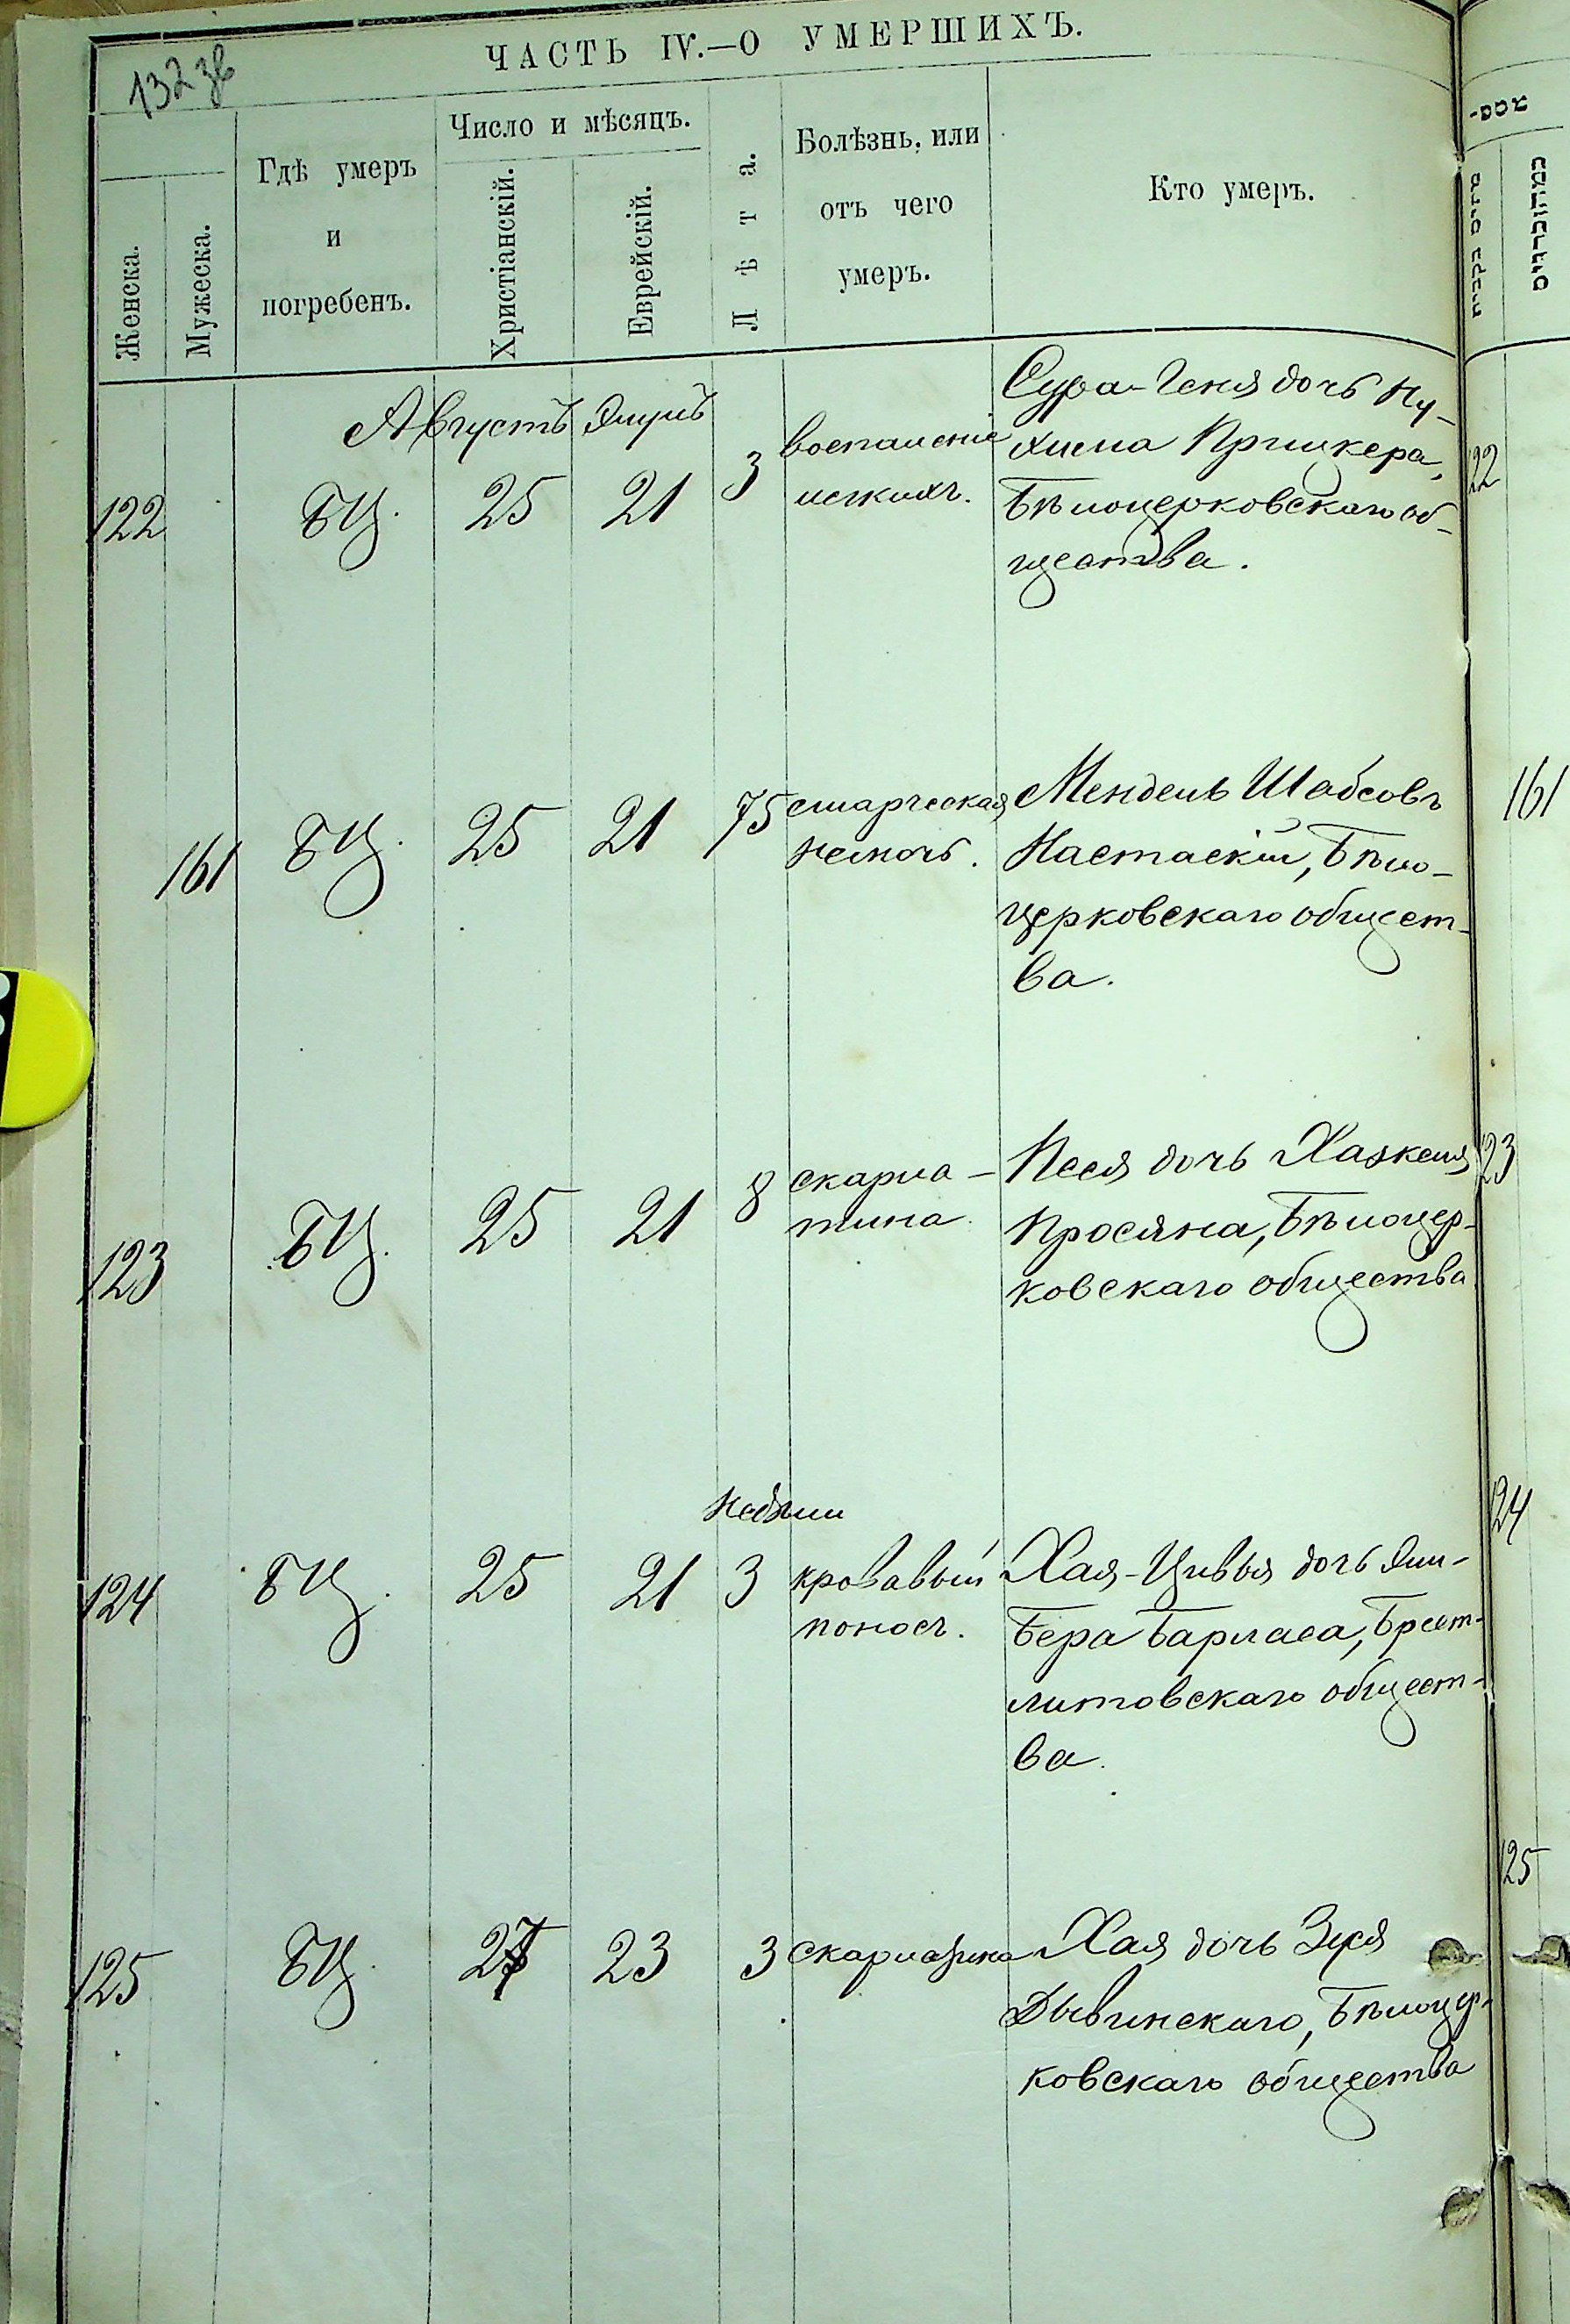 132 зв
ЧАСТЬ IV.—О УМЕРШИХЪ.
Женска.
Мужеска.
Гдѣ умеръ
и
погребенъ.
Число и мѣсяцъ.
Христіанскій.
Еврейскій.
Лѣта.
Болѣзнь, или
отъ чего
умеръ.
Кто умеръ.
Августъ Элулъ
122 БЦ. 25 21 3
воспаленіе
легкихъ.
Сура-Геня дочь Ну-
химa Прицкера,
Бѣлоцерковскаго об-
щества.
22
161 БЦ. 25 21 75
старческая
немочь.
Мендель Шабсовъ
Настаскій, Бѣло-
церковскаго общест-
ва.
161
123 БЦ. 25 21 8
скарла-
тина.
Песя дочь Хаскеля
Просяна, Бѣлоцер-
ковскаго общества
23
124 БЦ. 25 21
недѣли
3
кровавый
поносъ.
Хая-Цивья дочь
Бера Барласа, Брест-
литовскаго общест-
ва.
24
125 БЦ. 27 23 3
скарлатина
Хая дочь
Дывинскаго, Бѣлоцер-
ковскаго общества
25